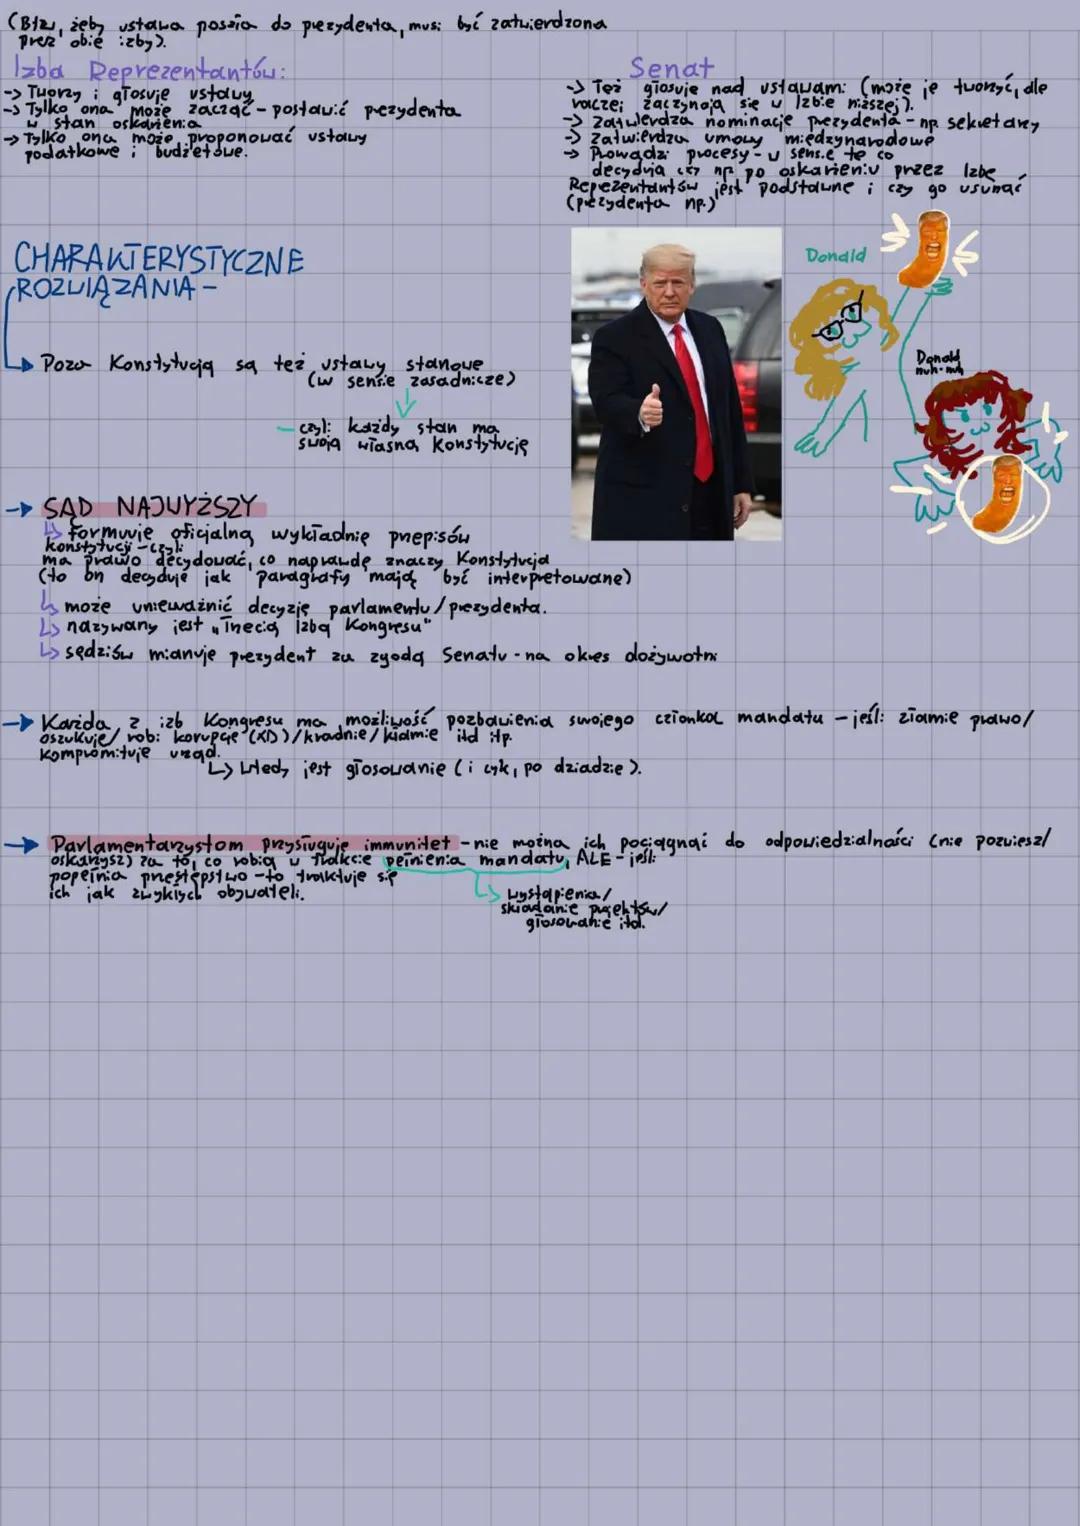 (Btw, żeby ustawa poszła do prezydenta, musi być zatwierdzona
przez obie izby).
Izba Reprezentantów:
-> Tworzy i głosuje ustawy
-> Tylko ona może zacząć - postawić prezydenta
w stan oskarżenia
-> Tylko ona może proponować ustawy
podatkowe i budżetowe.
Senat
-> Też głosuje nad ustawami (może je tworzyć, ale
raczej zaczynają się w Izbie niższej).
-> Zatwierdza nominacje prezydenta - np. sekretarzy
-> Zatwierdza umowy międzynarodowe
-> Prowadzi procesy - w sensie te co
decydują czy np po oskarżeniu przez Izbę
Reprezentantów jest podstawne i czy go usunąć
(prezydenta np.)
CHARAKTERYSTYCZNE
ROZWIĄZANIA -
Donald
Donald
nuh-nuh
Poza Konstytucją są też ustawy stanowe
(w sensie zasadnicze)
czyli każdy stan ma
swoją własną Konstytucję
-> SĄD NAJWYŻSZY
↳ formułuje oficjalną wykładnię przepisów
konstytucji - czyli
ma prawo decydować, co naprawdę znaczy Konstytucja
(to on decyduje jak paragrafy mają być interpretowane)
↳ może unieważnić decyzję parlamentu/prezydenta.
↳ nazywany jest „Trzecią Izbą Kongresu"
↳ sędziów mianuje prezydent za zgodą Senatu - na okres dożywotni
-> Każda z izb Kongresu ma możliwość pozbawienia swojego członka mandatu - jeśli złamie prawo/
oszukuje/robi korupcję (XD)/kradnie/kłamie itd itp.
kompromituje urząd.
↳ Wtedy jest głosowanie (i cyk, po dziadzie).
-> Parlamentarzystom przysługuje immunitet - nie można ich pociągnąć do odpowiedzialności (nie pozwiesz/
oskarżysz) za to, co robią w trakcie pełnienia mandatu, ALE - jeśli
popełnią przestępstwo - to traktuje się
ich jak zwykłych obywateli.
↳ wystąpienia/
składanie projektów/
głosowanie itd.